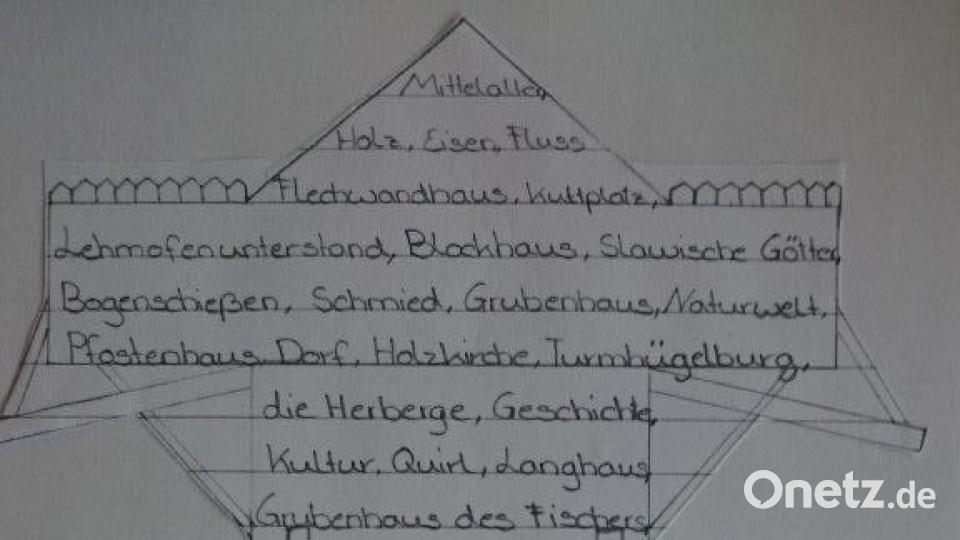 Mittelalter,
Holz, Eisen, Fluss
Flectwandhaus, Kultplatz,
Lehmofenunterstand, Blockhaus, Slawische Götter,
Bogenschießen, Schmied, Grubenhaus, Naturwelt,
Pfostenhaus Dorf, Holzkirche, Turmhügelburg,
die Herberge, Geschichte,
Kultur, Quirl, Langhaus
Grubenhaus des Fischers
Onetz.de